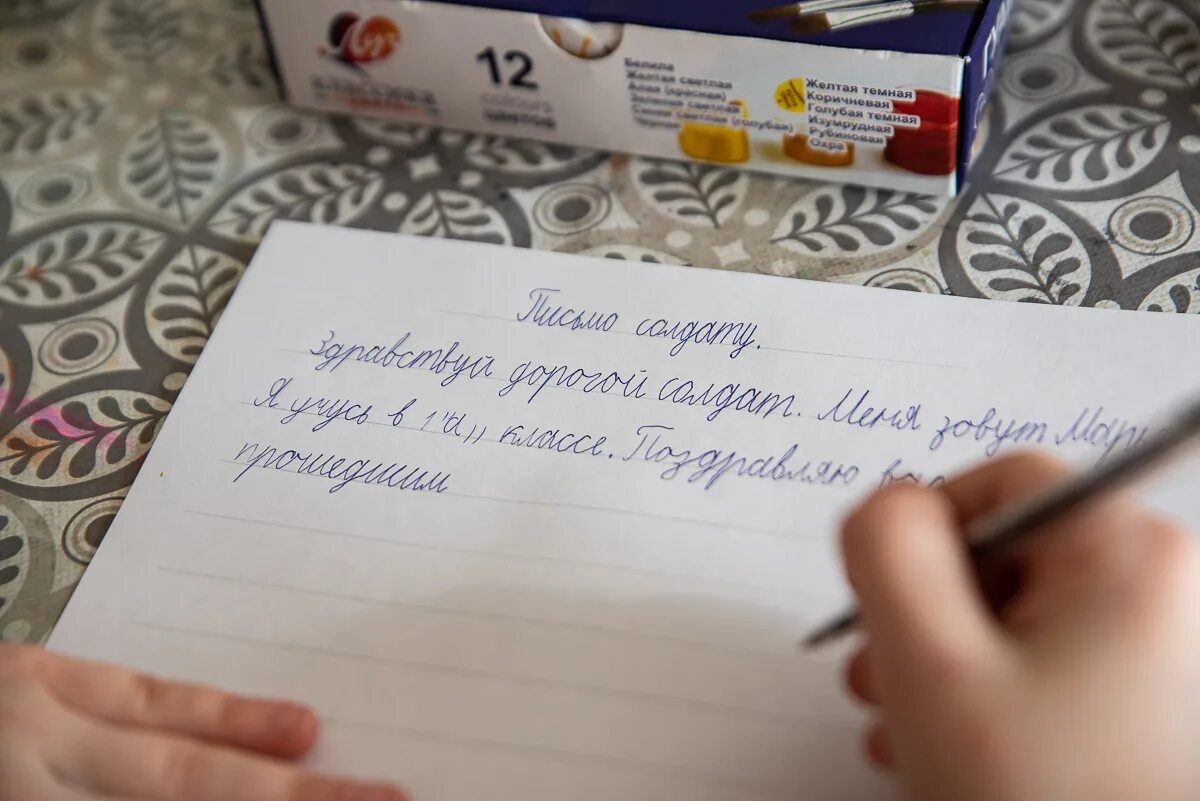 Луч
КЛАССИКА
ЦВЕТА
12
colours
цветов
Белила
Желтая светлая
Алая (красная)
Зеленая светлая
Синяя светлая (голубая)
Черная
Желтая темная
Коричневая
Голубая темная
Изумрудная
Рубиновая
Охра
Письмо солдату.
Здравствуй дорогой солдат. Меня зовут
Я учусь в 1"а,, классе. Поздравляю вас
прошедшим